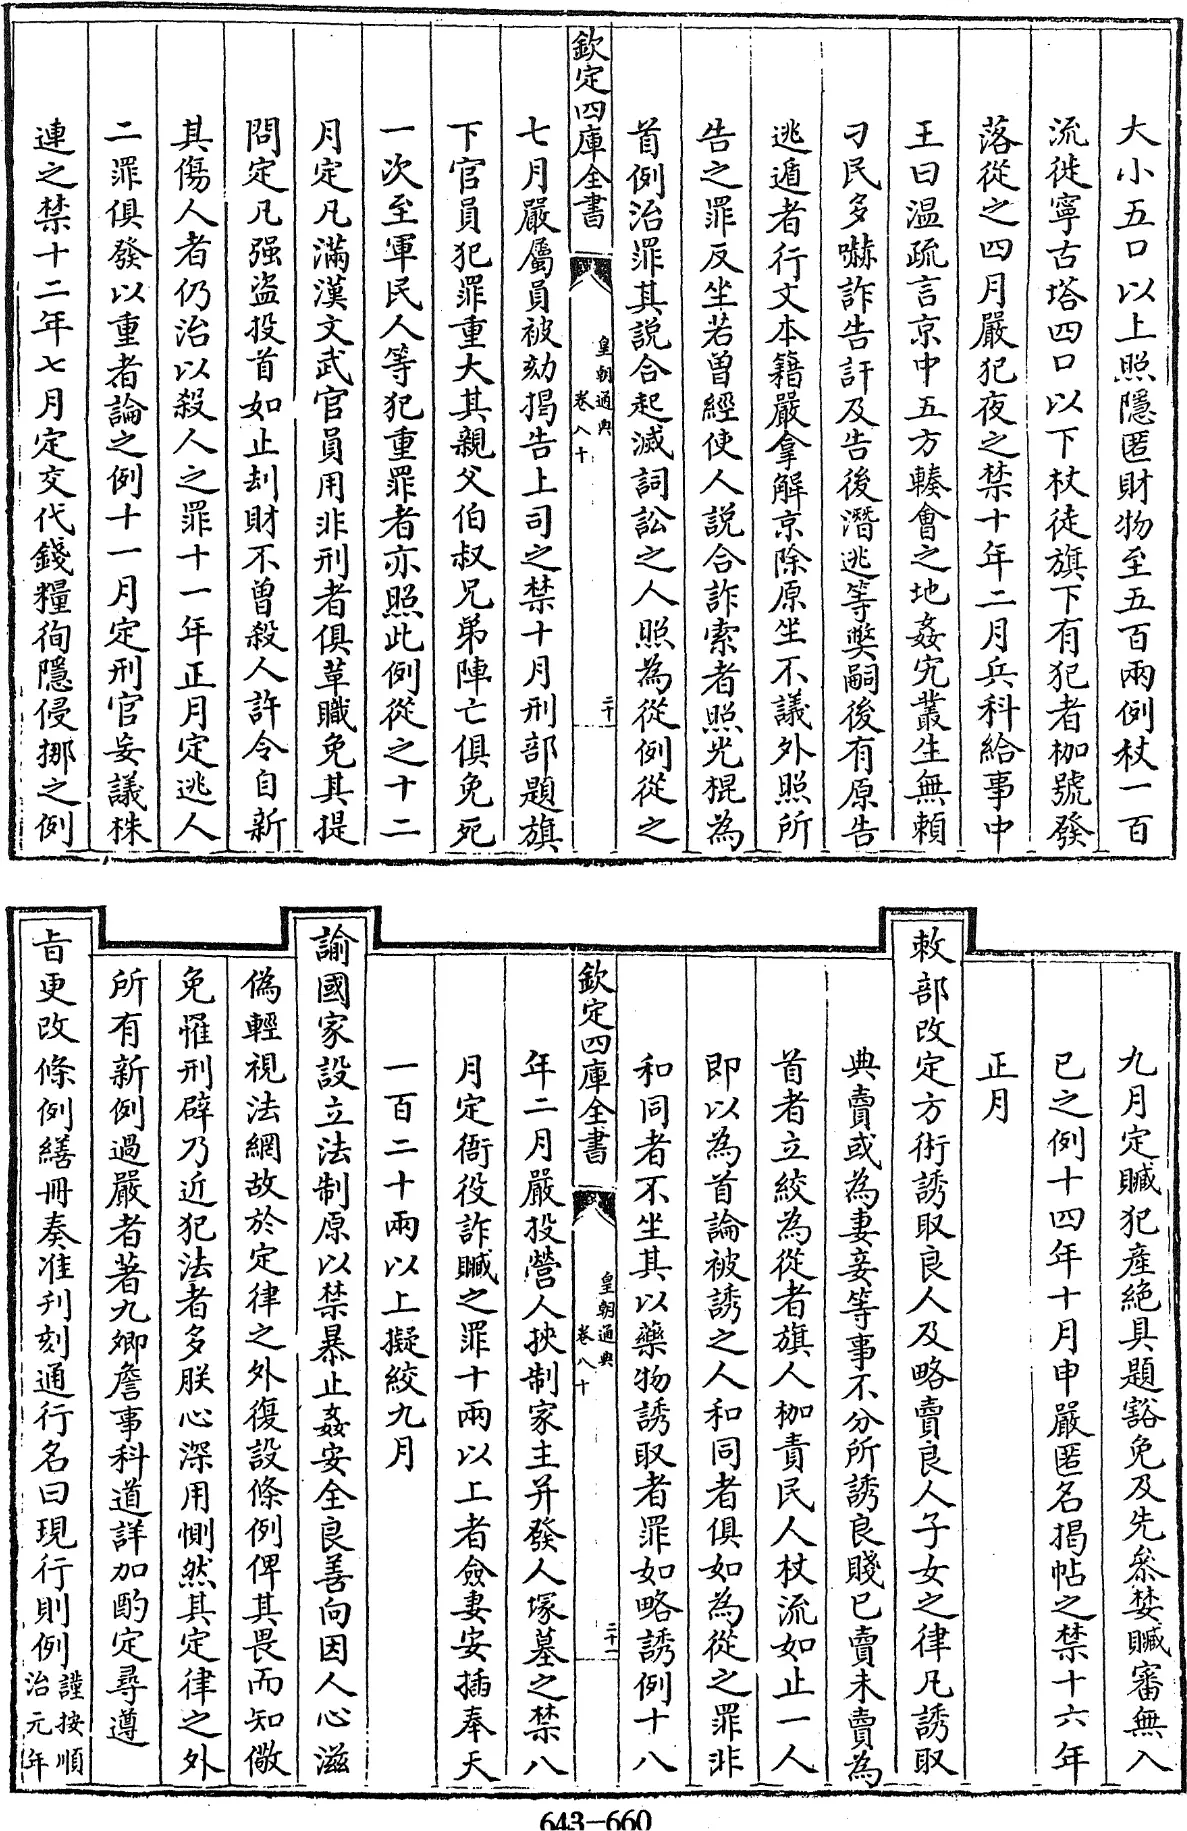 大小五口以上照隱匿財物至五百兩例杖一百
流徙寧古塔四口以下杖徒旗下有犯者枷號發
落從之四月嚴犯夜之禁十年二月兵科給事中
王曰温疏言京中五方輳會之地姦宄叢生無賴
刁民多嚇詐告訐及告後潛逃等獘嗣後有原告
逃遁者行文本籍嚴拿解京除原坐不議外照所
告之罪反坐若曽經使人説合詐索者照光棍為
首例治罪其説合起滅詞訟之人照為從例從之
欽定四庫全書
皇朝通典
卷八十
二十
七月嚴屬員被劾揭告上司之禁十月刑部題旗
下官員犯罪重大其親父伯叔兄弟陣亡俱免死
一次至軍民人等犯重罪者亦照此例從之十二
月定凡滿漢文武官員用非刑者俱革職免其提
問定凡强盗投首如止刦財不曽殺人許令自新
其傷人者仍治以殺人之罪十一年正月定逃人
二罪俱發以重者論之例十一月定刑官妄議株
連之禁十二年七月定交代錢糧徇隱侵挪之例
九月定贓犯産絶具題豁免及先叅婪贓審無入
已之例十四年十月申嚴匿名揭帖之禁十六年
正月
敕部改定方術誘取良人及略賣良人子女之律凡誘取
典賣或為妻妾等事不分所誘良賤已賣未賣為
首者立絞為從者旗人枷責民人杖流如止一人
即以為首論被誘之人和同者俱如為從之罪非
和同者不坐其以藥物誘取者罪如略誘例十八
欽定四庫全書
皇朝通典
卷八十
二十一
年二月嚴投營人挾制家主并發人塚墓之禁八
月定衙役詐贓之罪十兩以上者僉妻安插奉天
一百二十兩以上擬絞九月
諭國家設立法制原以禁暴止姦安全良善向因人心滋
偽輕視法網故於定律之外復設條例俾其畏而知儆
免罹刑辟乃近犯法者多朕心深用惻然其定律之外
所有新例過嚴者著九卿詹事科道詳加酌定尋遵
㫖更改條例繕冊奏准刋刻通行名曰現行則例謹按順
治元年
643-660